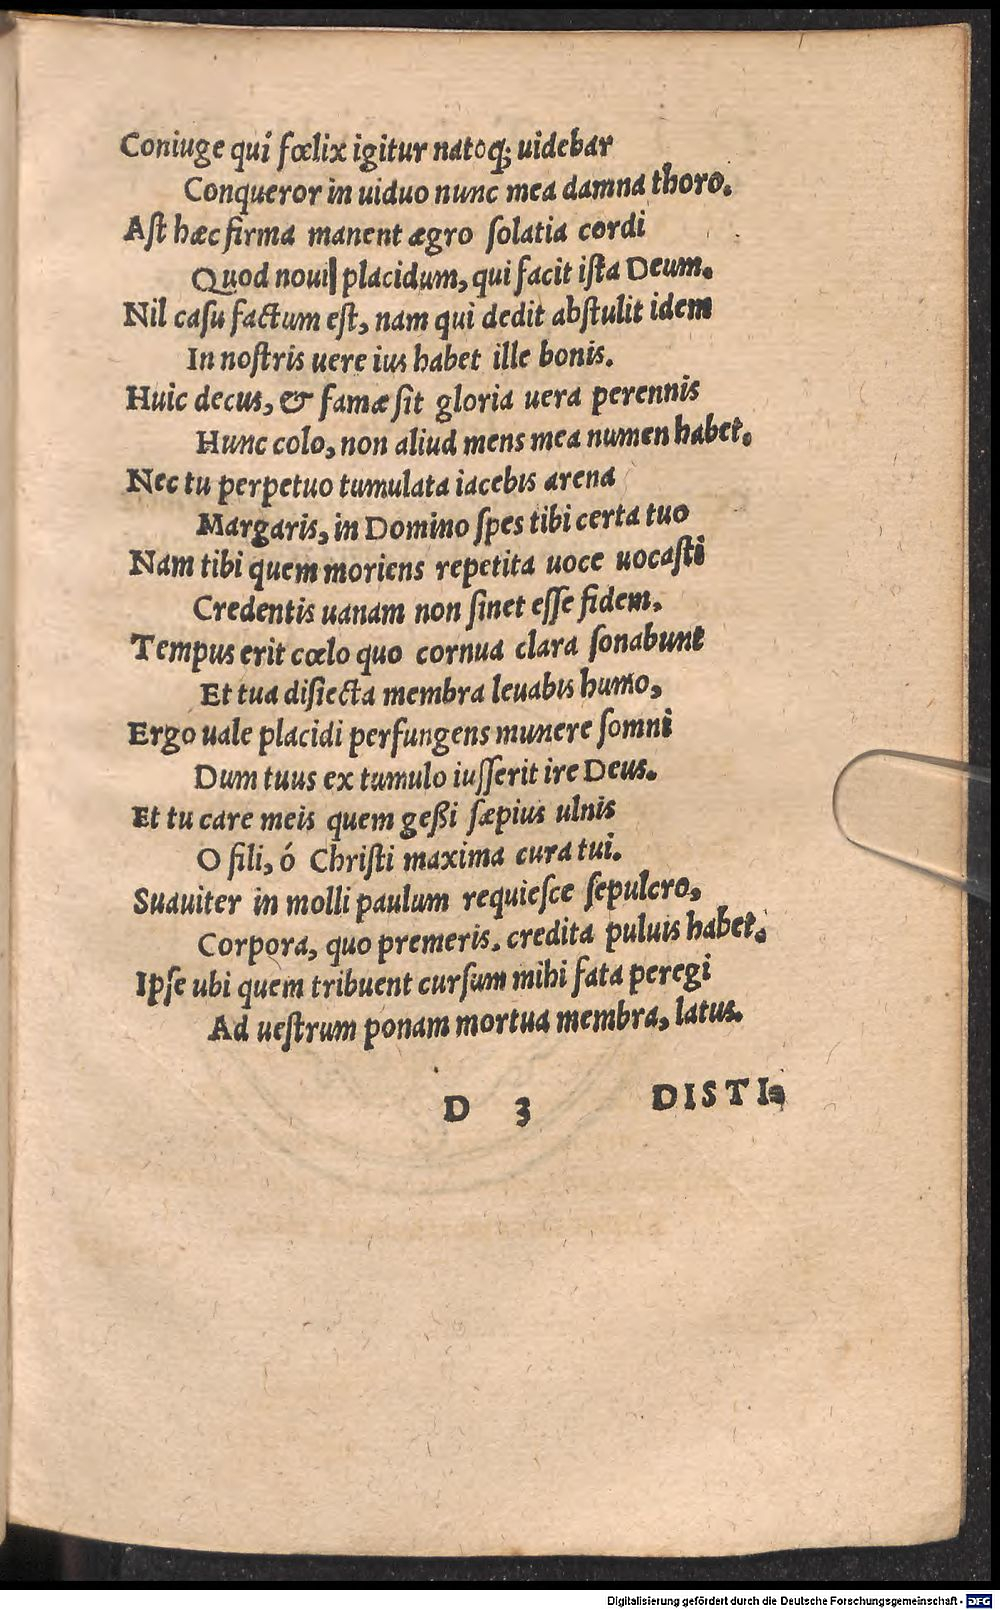 Coniuge qui fœlix igitur natoq́; uidebar
Conqueror in uiduo nunc mea damna thoro.
Aſt hæc firma manent ægro ſolatia cordi
Quod noui placidum, qui facit iſta Deum.
Nil caſu factum eſt, nam qui dedit abſtulit idem
In noſtris uere ius habet ille bonis.
Huic decus, & famæ ſit gloria uera perennis
Hunc colo, non aliud mens mea numen habet.
Nec tu perpetuo tumulata iacebis arena
Margaris, in Domino ſpes tibi certa tuo
Nam tibi quem moriens repetita uoce uocaſti
Credentis uanam non ſinet eſſe fidem.
Tempus erit cœlo quo cornua clara ſonabunt
Et tua diſiecta membra leuabis humo,
Ergo uale placidi perfungens munere ſomni
Dum tuus ex tumulo iuſſerit ire Deus.
Et tu care meis quem geßi ſæpius ulnis
O fili, ó Chriſti maxima cura tui.
Suauiter in molli paulum requieſce ſepulcro,
Corpora, quo premeris. credita puluis habet.
Ipſe ubi quem tribuent curſum mihi fata peregi
Ad ueſtrum ponam mortua membra, latus.
D 3 DISTI⸗
Digitalisierung gefördert durch die Deutsche Forschungsgemeinschaft - DFG